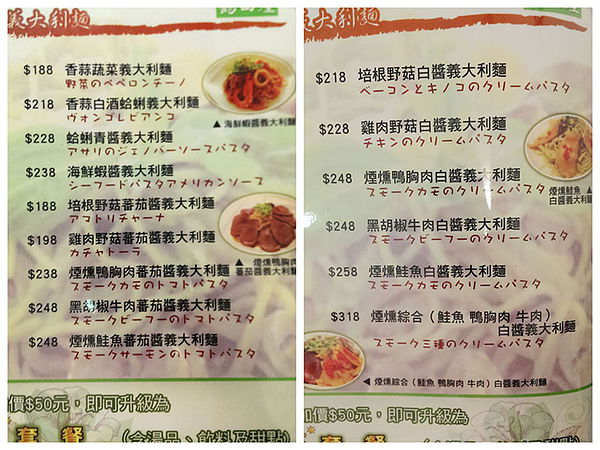 義大利麵
$188 香蒜蔬菜義大利麵
野菜のペペロンチーノ
$218 香蒜白酒蛤蜊義大利麵
ヴォンゴレビアンコ
▲ 海鮮蝦醬義大利麵
$228 蛤蜊青醬義大利麵
アサリのジェノバーソースパスタ
$238 海鮮蝦醬義大利麵
シーフードパスタアメリカンソース
$188 培根野菇蕃茄醬義大利麵
アマトリチャーナ
$198 雞肉野菇蕃茄醬義大利麵
カチャトーラ
▲ 煙燻鴨胸肉
蕃茄醬義大利麵
$238 煙燻鴨胸肉蕃茄醬義大利麵
スモークカモのトマトパスタ
$248 黑胡椒牛肉蕃茄醬義大利麵
スモークビーフのトマトパスタ
$248 煙燻鮭魚蕃茄醬義大利麵
スモークサーモンのトマトパスタ
價$50元，即可升級為
套餐 (含湯品、飲料及甜點)
義大利麵
$218 培根野菇白醬義大利麵
ベーコンとキノコのクリームパスタ
$228 雞肉野菇白醬義大利麵
チキンのクリームパスタ
$248 煙燻鴨胸肉白醬義大利麵
スモークカモのクリームパスタ
煙燻鮭魚 ▲
白醬義大利麵
$248 黑胡椒牛肉白醬義大利麵
スモークビーフのクリームパスタ
$258 煙燻鮭魚白醬義大利麵
スモークカモのクリームパスタ
$318 煙燻綜合（鮭魚 鴨胸肉 牛肉）
白醬義大利麵
スモーク三種のクリームパスタ
◀ 煙燻綜合（鮭魚 鴨胸肉 牛肉）白醬義大利麵
加價$50元，即可升級為
套餐